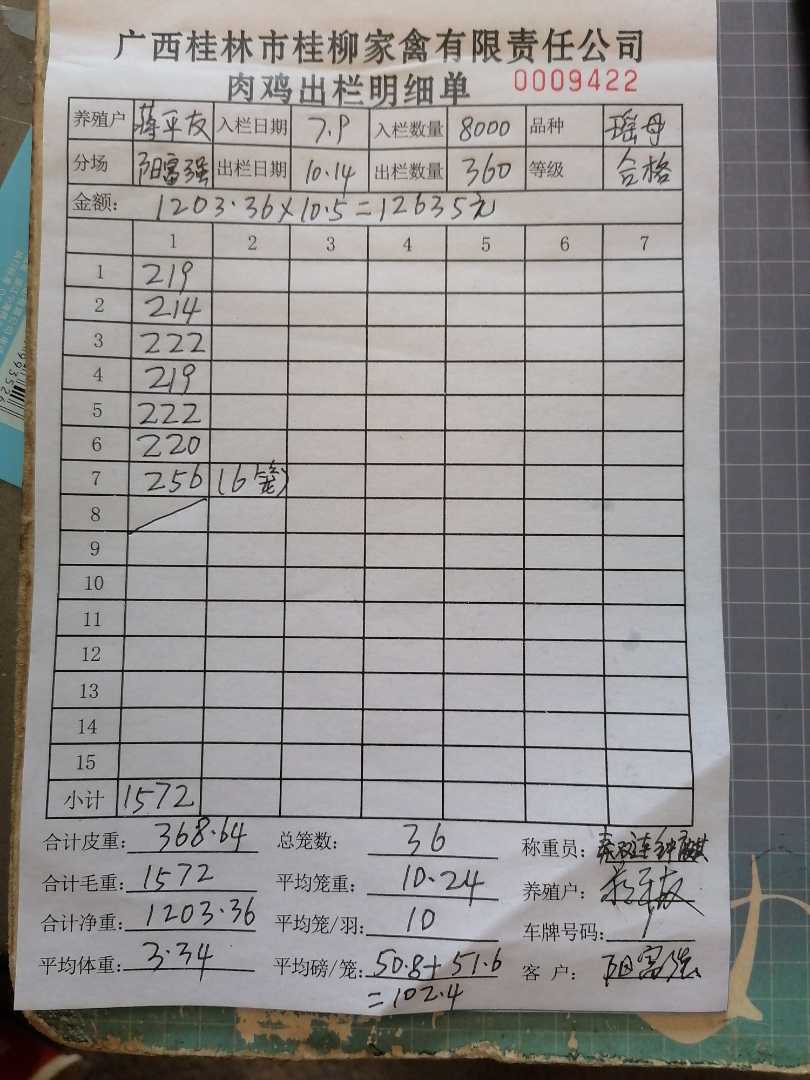 广西桂林市桂柳家禽有限责任公司
肉鸡出栏明细单 0009422
养殖户 蒋平友 入栏日期 7.9 入栏数量 8000 品种 瑶母
分场 阳富强 出栏日期 10.14 出栏数量 360 等级 合格
金额: 1203.36×10.5=12635元
1 2 3 4 5 6 7
1 219
2 214
3 222
4 219
5 222
6 220
7 256 (6笼)
8
9
10
11
12
13
14
15
小计 1572
合计皮重: 368.64 总笼数: 36 称重员:
合计毛重: 1572 平均笼重: 10.24 养殖户: 蒋平友
合计净重: 1203.36 平均笼/羽: 10 车牌号码: /
平均体重: 3.34 平均磅/笼: 50.8+51.6 客户: 阳富强
=102.4